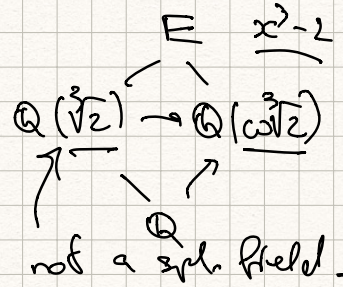 E x³ - 2
Q (∛2) → Q (ω∛2)
Q
not a spl. field.